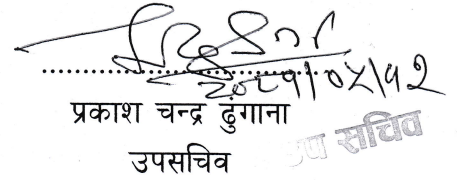 २०८१/०५/१२
प्रकाश चन्द्र ढुंगाना
उप सचिव
उपसचिव